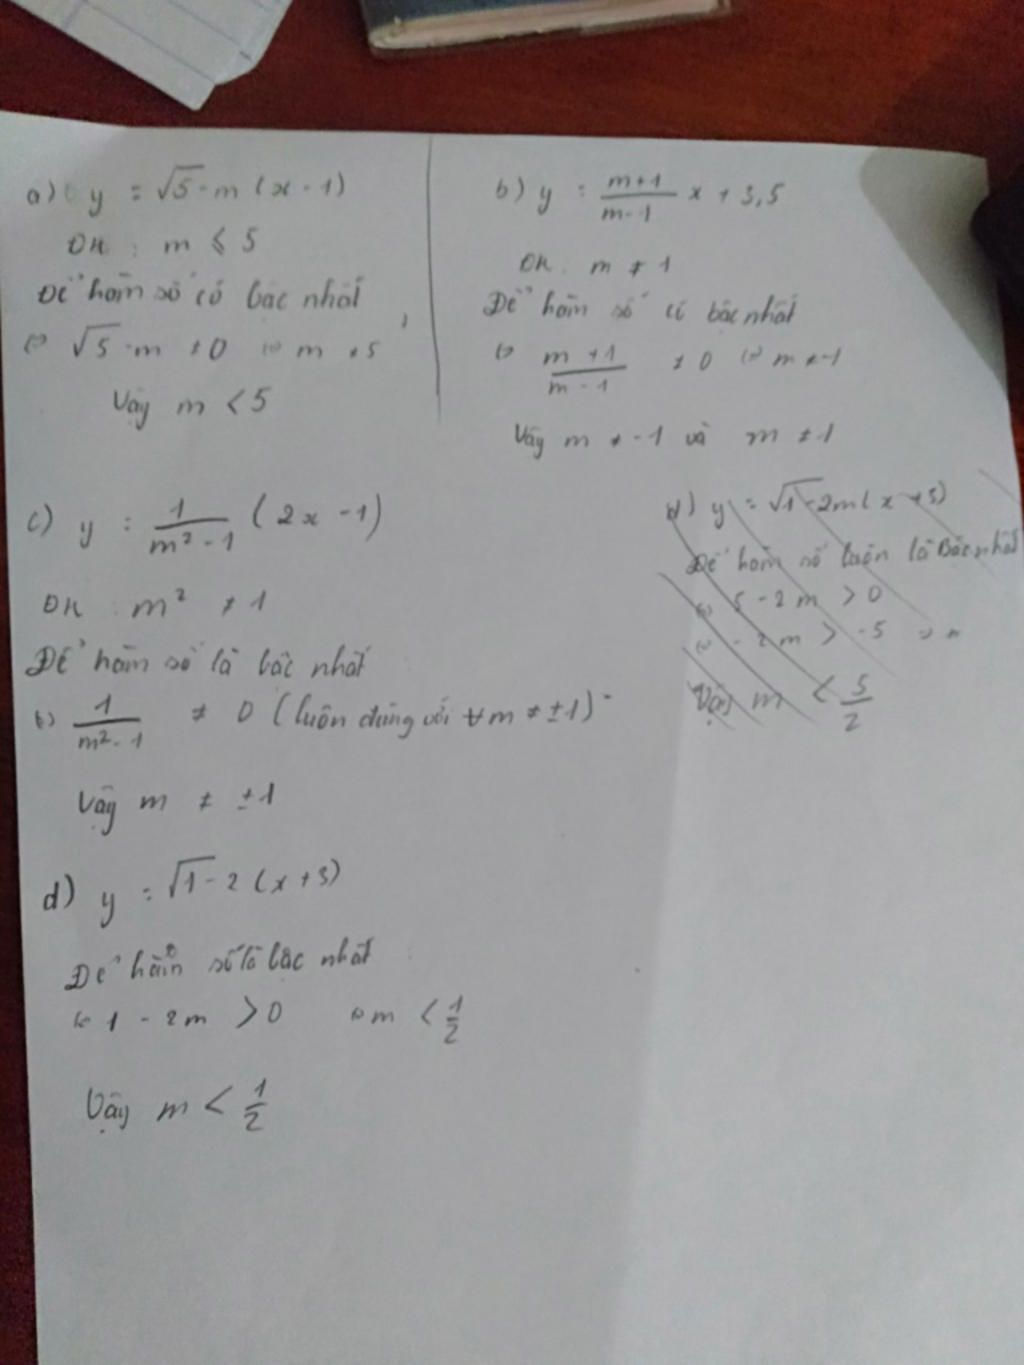 a) y = √5 - m (x - 1)
ĐK : m ⩽ 5
Để hàm số có bậc nhất
(=) √5 - m ≠ 0 (=) m ≠ 5
Vậy m < 5
b) y = \frac{m+1}{m-1} x + 3,5
ĐK : m ≠ 1
Để hàm số có bậc nhất
(=) \frac{m+1}{m-1} ≠ 0 (=) m ≠ -1
Vậy m ≠ -1 và m ≠ 1
c) y = \frac{1}{m² - 1} (2x - 1)
ĐK : m² ≠ 1
Để hàm số là bậc nhất
(=) \frac{1}{m² - 1} ≠ 0 (luôn đúng với ∀m ≠ ±1)
Vậy m ≠ ±1
d) y = √1 - 2m (x + 3)
Để hàm số luôn là Bậc nhất
(=) 5 - 2m > 0
(=) - 2m > -5
Vậy m < \frac{5}{2}
d) y = √1 - 2 (x + 3)
Để hàm số là bậc nhất
(=) 1 - 2m > 0 (=) m < \frac{1}{2}
Vậy m < \frac{1}{2}